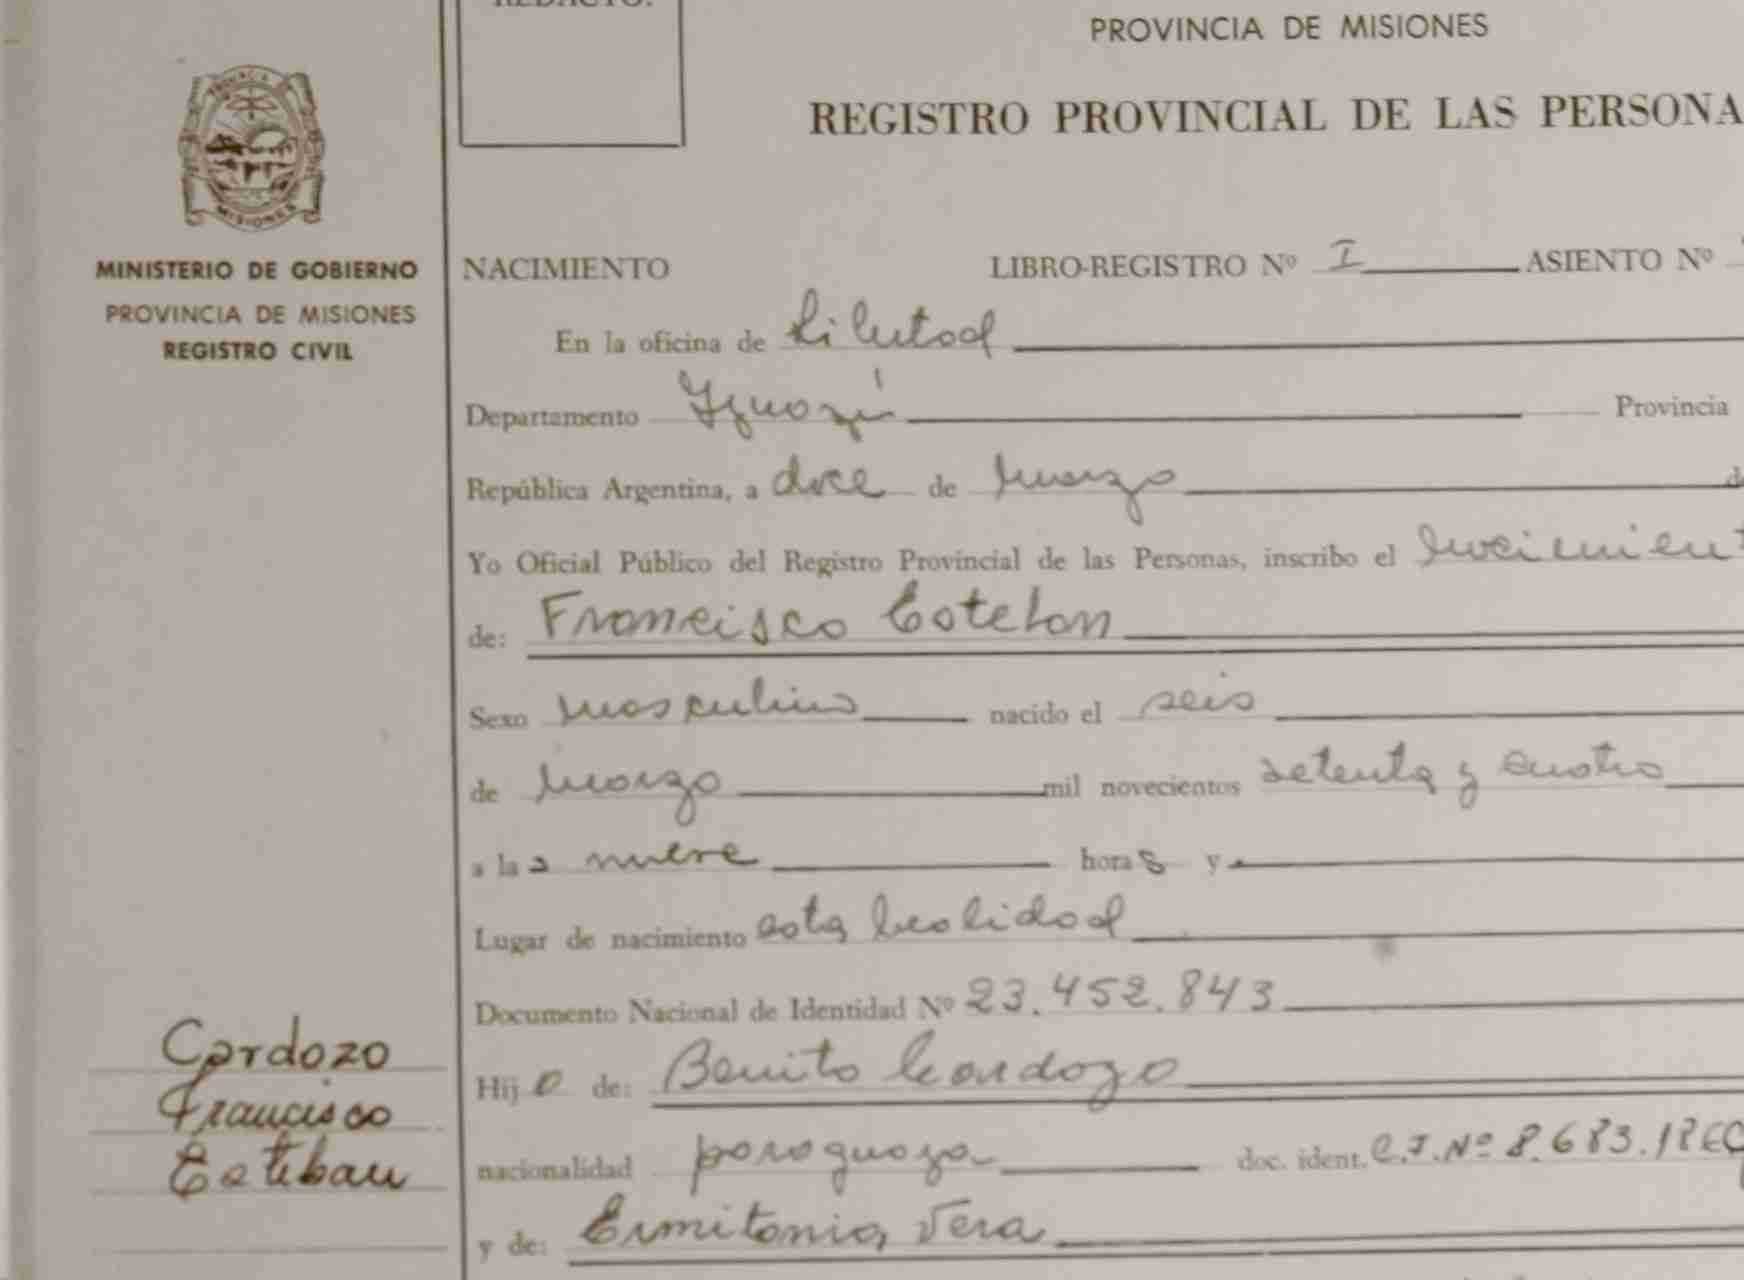 REDACTO:
PROVINCIA DE MISIONES
REGISTRO PROVINCIAL DE LAS PERSONA
MISIONES
MINISTERIO DE GOBIERNO
PROVINCIA DE MISIONES
REGISTRO CIVIL
NACIMIENTO LIBRO-REGISTRO Nº I ASIENTO Nº
En la oficina de Libertad
Departamento Iguazú Provincia
República Argentina, a doce de marzo
Yo Oficial Público del Registro Provincial de las Personas, inscribo el nacimient
de: Francisco Esteban
Sexo masculino nacido el seis
de marzo mil novecientos setenta y cuatro
a las nueve horas y
Lugar de nacimiento esta localidad
Documento Nacional de Identidad Nº 23.452.843
Hijo de: Benito Cardozo
nacionalidad paraguaya doc. ident. C.I. Nº 8.683.
y de: Ermitania Vera
Cardozo
Francisco
Esteban